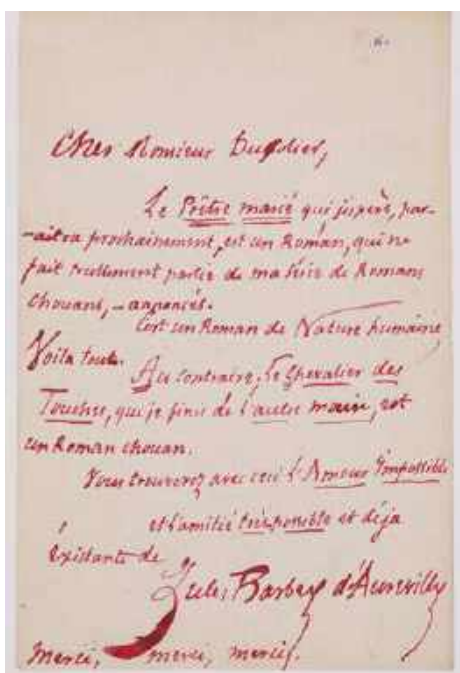 Cher Monsieur
Le Prêtre marié qui j'espère, par-
-aitra prochainement, est un Roman, qui ne
fait nullement partie de ma série de Romans
Chouans, – annoncés.
C'est un Roman de Nature humaine
Voilà tout.
Au contraire, Le Chevalier des
Touches, que je finis de l'autre main, est
un Roman chouan.
Vous trouverez avec ceci l'Amour Impossible
et l'amitié très possible et déjà
existante de
Jules Barbey d'Aurevilly
Merci, merci, merci.